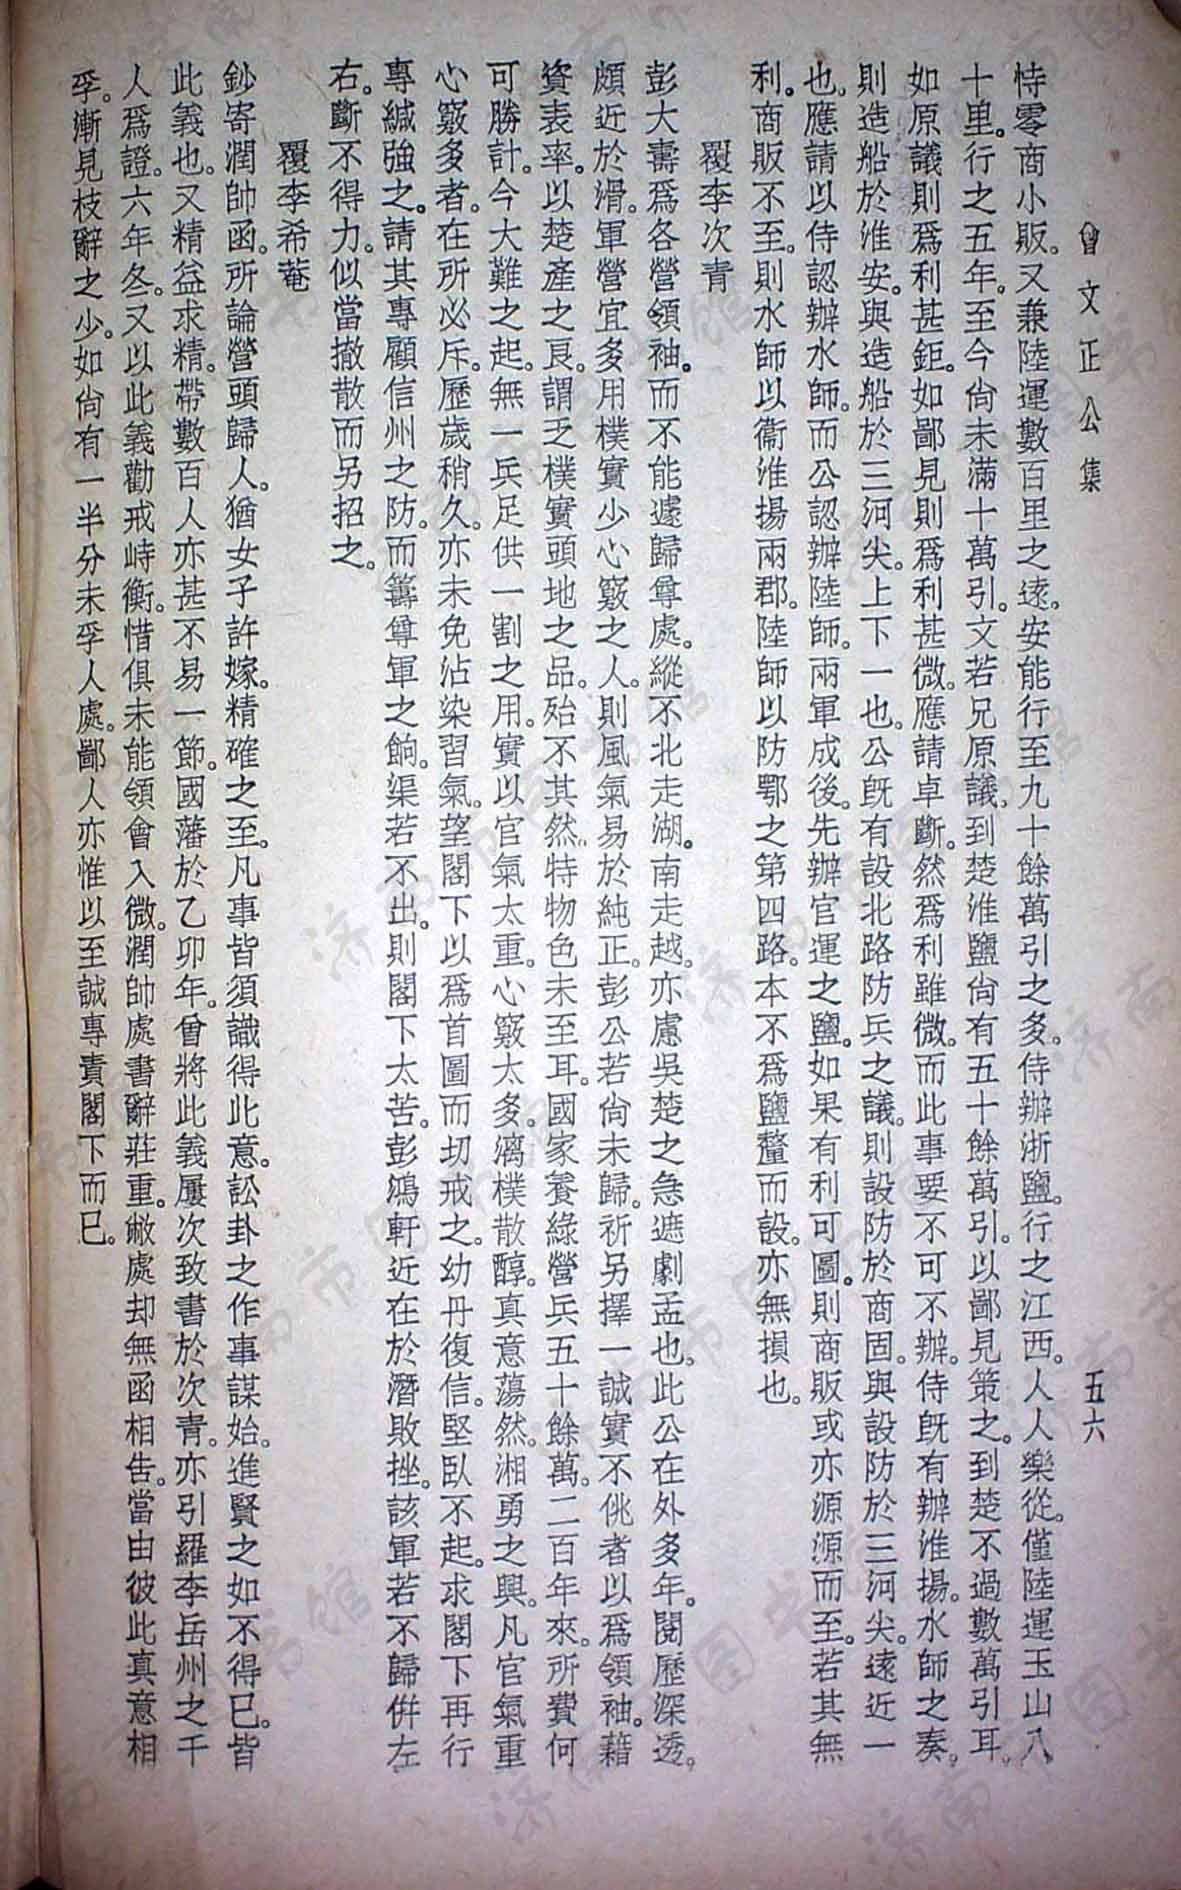 曾文正公集
五六
恃零商小販。又兼陸運數百里之遠。安能行至九十餘萬引之多。侍辦浙鹽。行之江西。人人樂從。僅陸運玉山八
十里。行之五年。至今尚未滿十萬引。文若兄原議。到楚淮鹽尚有五十餘萬引。以鄙見策之。到楚不過數萬引耳。
如原議則爲利甚鉅。如鄙見則爲利甚微。應請卓斷。然爲利雖微。而此事要不可不辦。侍旣有辦淮揚。水師之奏。
則造船於淮安。與造船於三河尖。上下一也。公旣有設北路防兵之議。則設防於商固。與設防於三河尖。遠近一
也。應請以侍認辦水師。而公認辦陸師。兩軍成後。先辦官運之鹽。如果有利可圖。則商販或亦源源而至。若其無
利。商販不至。則水師以衞淮揚兩郡。陸師以防鄂之第四路。本不爲鹽釐而設。亦無損也。
覆李次青
彭大壽爲各營領袖。而不能遽歸尊處。縱不北走湖。南走越。亦慮吳楚之急遮劇孟也。此公在外多年。閱歷深透。
頗近於滑。軍營宜多用樸實少心竅之人。則風氣易於純正。彭公若尚未歸。祈另擇一誠實不佻者以爲領袖。藉
資表率。以楚產之良。謂乏樸實頭地之品。殆不其然。特物色未至耳。國家養綠營兵五十餘萬。二百年來。所費何
可勝計。今大難之起。無一兵足供一割之用。實以官氣太重。心竅太多。漓樸散醇。真意蕩然。湘勇之興。凡官氣重
心竅多者。在所必斥。歷歲稍久。亦未免沾染習氣。望閣下以爲首圖而切戒之。幼丹復信。堅臥不起。求閣下再行
專緘強之。請其專顧信州之防。而籌尊軍之餉。渠若不出。則閣下太苦。彭鴻軒近在於潛敗挫。該軍若不歸併左
右。斷不得力。似當撤散而另招之。
覆李希菴
鈔寄潤帥函。所論營頭歸人。猶女子許嫁。精確之至。凡事皆須識得此意。訟卦之作事謀始。進賢之如不得已。皆
此義也。又精益求精。帶數百人亦甚不易一節。國藩於乙卯年。曾將此義屢次致書於次青。亦引羅李岳州之千
人爲證。六年冬。又以此義勸戒峙衡。惜俱未能領會入微。潤帥處書辭莊重。敝處却無函相告。當由彼此真意相
孚。漸見枝辭之少。如尚有一半分未孚人處。鄙人亦惟以至誠專責閣下而已。